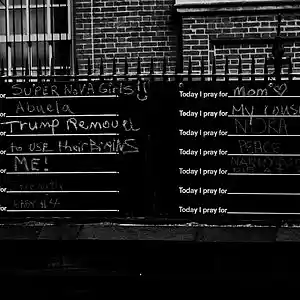 or SUPER NOVA GirlS
or Abuela
or Trump Removed
or to USE their BRAINS
or ME!
or
or BABY
Today I pray for Mom
Today I pray for MY COUSI
Today I pray for NORA
Today I pray for PEACE
Today I pray for
Today I pray for
Today I pray for